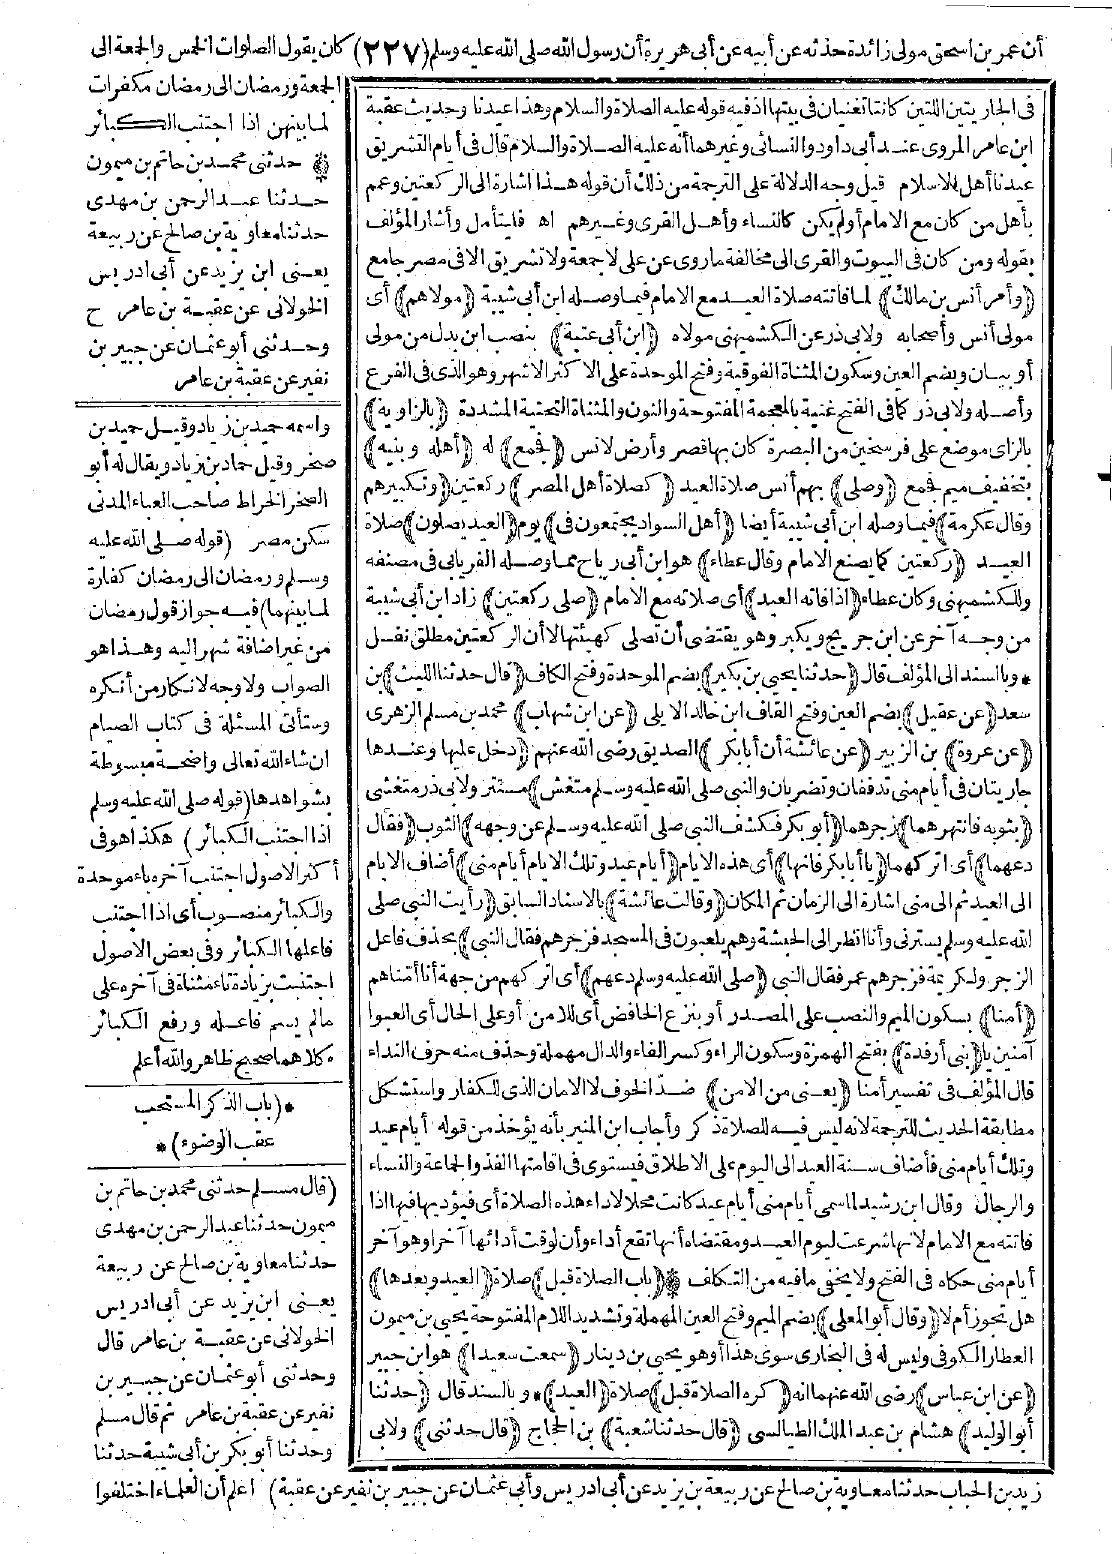 أن عمر بن اسحق مولى زائدة حدثه عن أبيه عن أبي هريرة أن رسول الله صلى الله عليه وسلم (٢٢٧) كان يقول الصلوات الخمس والجمعة الى
الجمعة ورمضان الى رمضان مكفرات
لما بينهن اذا اجتنب الكبائر
حدثنى محمد بن حاتم بن ميمون
حدثنا عبد الرحمن بن مهدى
حدثنا معاوية بن صالح عن ربيعة
يعنى ابن يزيد عن أبى ادريس
الخولانى عن عقبة بن عامر ح
وحدثنى أبو عثمان عن جبير بن
نفير عن عقبة بن عامر
واسمه حميد بن زياد وقيل حميد بن
صخر وقيل حماد بن زياد ويقال له أبو
الصخر الخراط صاحب العباء المدنى
سكن مصر (قوله صلى الله عليه
وسلم ورمضان الى رمضان كفارة
لما بينهما) فيه جواز قول رمضان
من غير اضافة شهر اليه وهذا هو
الصواب ولا وجه لانكار من أنكره
وستأتى المسئلة فى كتاب الصيام
ان شاء الله تعالى واضحة مبسوطة
بشواهدها (قوله صلى الله عليه وسلم
اذا اجتنب الكبائر) هكذا هو فى
أكثر الاصول اجتنب آخره باء موحدة
والكبائر منصوب أى اذا اجتنب
فاعلها الكبائر وفى بعض الاصول
اجتنبت بزيادة تاء مثناة فى آخره على
مالم يسم فاعله ورفع الكبائر
وكلاهما صحيح ظاهر والله أعلم
*(باب الذكر المستحب
عقب الوضوء)*
(قال مسلم حدثنى محمد بن حاتم بن
ميمون حدثنا عبد الرحمن بن مهدى
حدثنا معاوية بن صالح عن ربيعة
يعنى ابن يزيد عن أبى ادريس
الخولانى عن عقبة بن عامر قال
وحدثنى أبو عثمان عن جبير بن
نفير عن عقبة بن عامر ثم قال مسلم
وحدثنا أبو بكر بن أبى شيبة حدثنا
فى الجاريتين اللتين كانتا تغنيان فى بيتها اذ فيه قوله عليه الصلاة والسلام وهذا عيدنا وحديث عقبة
ابن عامر المروى عند أبى داود والنسائى وغيرهما أنه عليه الصلاة والسلام قال فى أيام التشريق
عيدنا أهل الاسلام قيل وجه الدلالة على الترجمة من ذلك أن قوله هذا اشارة الى الركعتين وعمم
بأهل من كان مع الامام أو لم يكن كالنساء وأهل القرى وغيرهم اه فليتأمل وأشار المؤلف
بقوله ومن كان فى البيوت والقرى الى مخالفة ماروى عن على لا جمعة ولا تشريق الا فى مصر جامع
(وأمر أنس بن مالك) لما فاتته صلاة العيد مع الامام فيما وصله ابن أبى شيبة (مولاهم) أى
مولى أنس وأصحابه ولابى ذر عن الكشميهنى مولاه (ابن أبى عتبة) بنصب ابن بدل من مولى
أو بيان وبضم العين وسكون المثناة الفوقية وفتح الموحدة على الاكثر الاشهر وهو الذى فى الفرع
وأصله ولابى ذر كما فى الفتح غنية بالمعجمة المفتوحة والنون والمثناة التحتية المشددة (بالزاوية)
بالزاى موضع على فرسخين من البصرة كان بها قصر وأرض لانس (فجمع) له (أهله وبنيه)
بتخفيف ميم فجمع (وصلى) بهم أنس صلاة العيد (كصلاة أهل المصر) ركعتين (وتكبيرهم
وقال عكرمة) فيما وصله ابن أبى شيبة أيضا (أهل السواد يجتمعون فى) يوم (العيد يصلون) صلاة
العيد (ركعتين كما يصنع الامام وقال عطاء) هو ابن أبى رباح مما وصله الفريابى فى مصنفه
وللكشميهنى وكان عطاء (اذا فاته العيد) أى صلاته مع الامام (صلى ركعتين) زاد ابن أبى شيبة
من وجه آخر عن ابن جريج ويكبر وهو يقتضى أن تصلى كهيئتها لا أن الركعتين مطلق نفل
* وبالسند الى المؤلف قال (حدثنا يحيى بن بكير) بضم الموحدة وفتح الكاف (قال حدثنا الليث) بن
سعد (عن عقيل) بضم العين وفتح القاف ابن خالد الايلى (عن ابن شهاب) محمد بن مسلم الزهرى
(عن عروة) بن الزبير (عن عائشة أن أبابكر) الصديق رضى الله عنهم (دخل عليها وعندها
جاريتان فى أيام منى تدففان وتضربان والنبى صلى الله عليه وسلم متغش) مستتر ولابى ذر متغشى
(بثوبه فانتهرهما) زجرهما (أبو بكر فكشف النبى صلى الله عليه وسلم عن وجهه) الثوب (فقال
دعهما) أى اتركهما (يا أبا بكر فانها) أى هذه الايام (أيام عيد وتلك الايام أيام منى) أضاف الايام
الى العيد ثم الى منى اشارة الى الزمان ثم المكان (وقالت عائشة) بالاسناد السابق (رأيت النبى صلى
الله عليه وسلم يسترنى وأنا أنظر الى الحبشة وهم يلعبون فى المسجد فزجرهم فقال النبى) بحذف فاعل
الزجر ولكريمة فزجرهم عمر فقال النبى (صلى الله عليه وسلم دعهم) أى اتركهم من جهة أنا أمناهم
(أمنا) بسكون الميم والنصب على المصدر أو بنزع الخافض أى للامن أو على الحال أى العبوا
آمنين يا (بنى أرفدة) بفتح الهمزة وسكون الراء وكسر الفاء والدال مهملة وحذف منه حرف النداء
قال المؤلف فى تفسير أمنا (يعنى من الامن) ضد الخوف لا الامان الذى للكفار واستشكل
مطابقة الحديث للترجمة لانه ليس فيه للصلاة ذكر وأجاب ابن المنير بأنه يؤخذ من قوله أيام عيد
وتلك أيام منى فأضاف سنة العيد الى اليوم على الاطلاق فيستوى فى اقامتها الفذ والجماعة والنساء
والرجال وقال ابن رشيد لما سمى أيام منى أيام عيد كانت محلا لاداء هذه الصلاة أى فيؤديها فيها اذا
فاتته مع الامام لانها شرعت ليوم العيد ومقتضاه أنها تقع أداء وأن لوقت أدائها آخرا وهو آخر
أيام منى حكاه فى الفتح ولا يخفى مافيه من التكلف * (باب الصلاة قبل) صلاة (العيد وبعدها)
هل تجوز أم لا (وقال أبو المعلى) بضم الميم وفتح العين المهملة وتشديد اللام المفتوحة يحيى بن ميمون
العطار الكوفى وليس له فى البخارى سوى هذا أو هو يحيى بن دينار (سمعت سعيدا) هو ابن جبير
(عن ابن عباس) رضى الله عنهما انه (كره الصلاة قبل) صلاة (العيد) * وبالسند قال (حدثنا
أبو الوليد) هشام بن عبد الملك الطيالسى (قال حدثنا شعبة) بن الحجاج (قال حدثنى) ولابى
زيد بن الحباب حدثنا معاوية بن صالح عن ربيعة بن يزيد عن أبى ادريس وأبى عثمان عن جبير بن نفير عن عقبة) اعلم أن العلماء اختلفوا